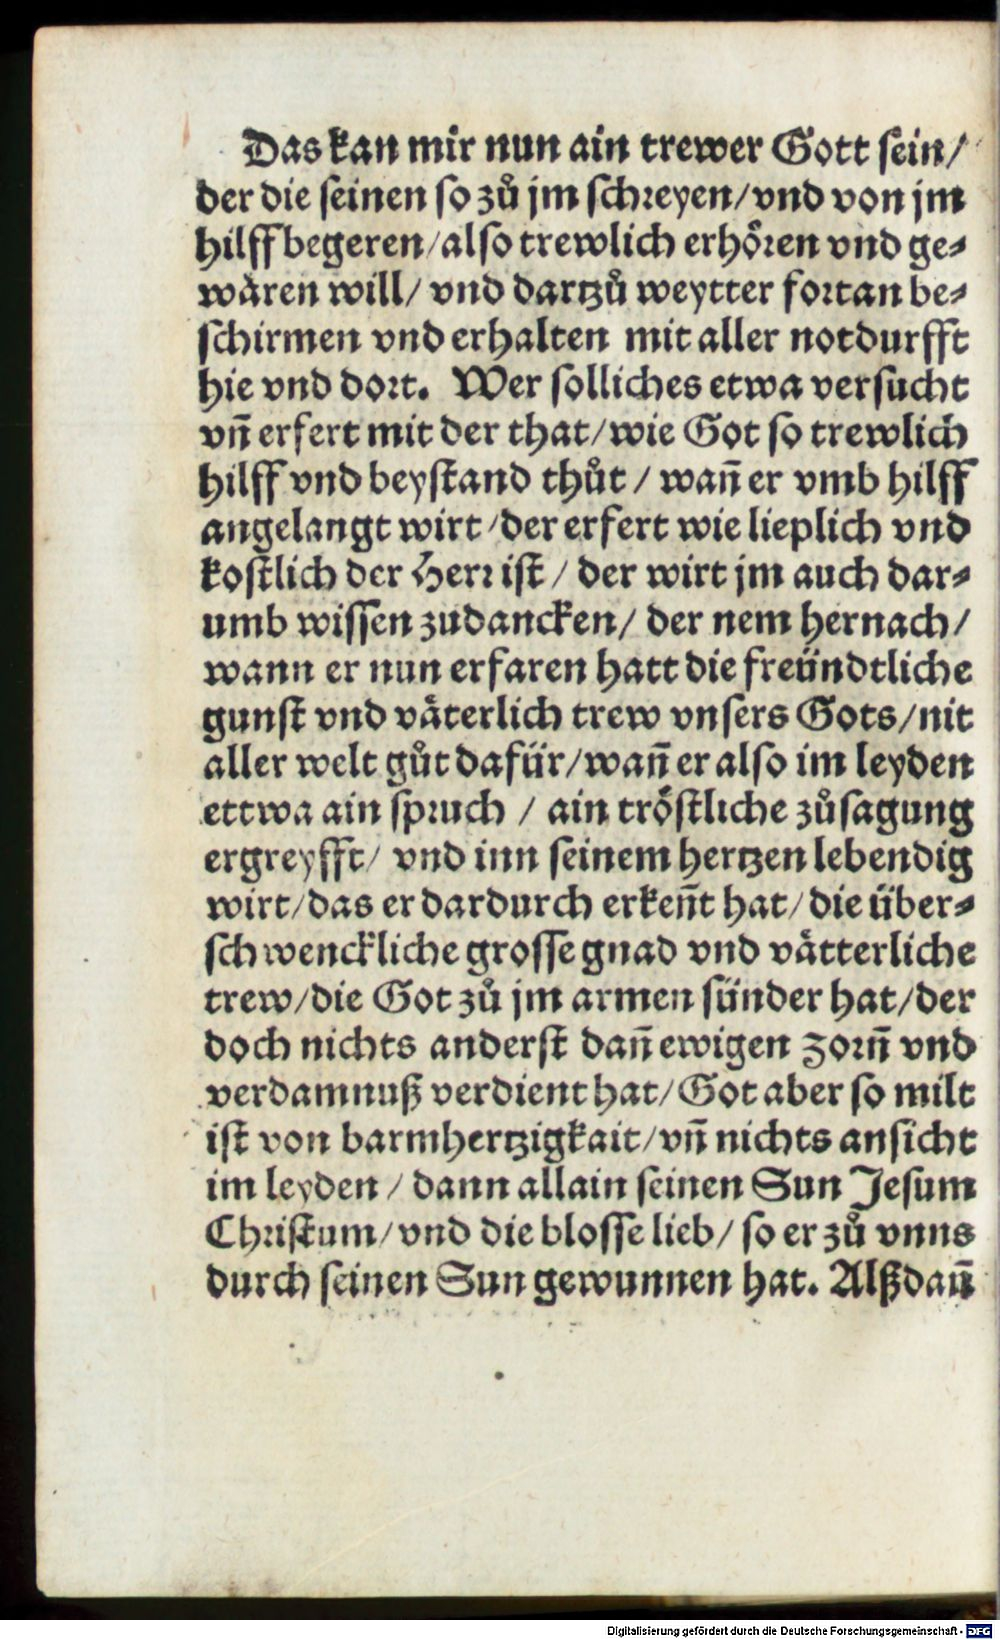 Das kan mir nun ain trewer Gott sein/
der die seinen so zuͦ jm schreyen/vnd von jm
hilff begeren/also trewlich erhoͤren vnd ge⸗
waͤren will/ vnd dartzuͦ weytter fortan be⸗
schirmen vnd erhalten mit aller notdurfft
hie vnd dort. Wer solliches etwa versucht
vñ erfert mit der that/wie Got so trewlich
hilff vnd beystand thuͦt / wañ er vmb hilff
angelangt wirt/der erfert wie lieplich vnd
kostlich der Herr ist / der wirt jm auch dar⸗
umb wissen zudancken/ der nem hernach/
wann er nun erfaren hatt die freündtliche
gunst vnd vaͤterlich trew vnsers Gots/nit
aller welt guͦt dafür/wañ er also im leyden
ettwa ain spruch / ain troͤstliche zuͦsagung
ergreyfft/ vnd inn seinem hertzen lebendig
wirt/das er dardurch erkeñt hat/die über⸗
schwenckliche grosse gnad vnd vaͤtterliche
trew/die Got zuͦ jm armen sünder hat/der
doch nichts anderst dañ ewigen zorñ vnd
verdamnuß verdient hat/Got aber so milt
ist von barmhertzigkait/vñ nichts ansicht
im leyden / dann allain seinen Sun Jesum
Christum/vnd die blosse lieb/ so er zuͦ vnns
durch seinen Sun gewunnen hat. Alßdañ
Digitalisierung gefördert durch die Deutsche Forschungsgemeinschaft - DFG